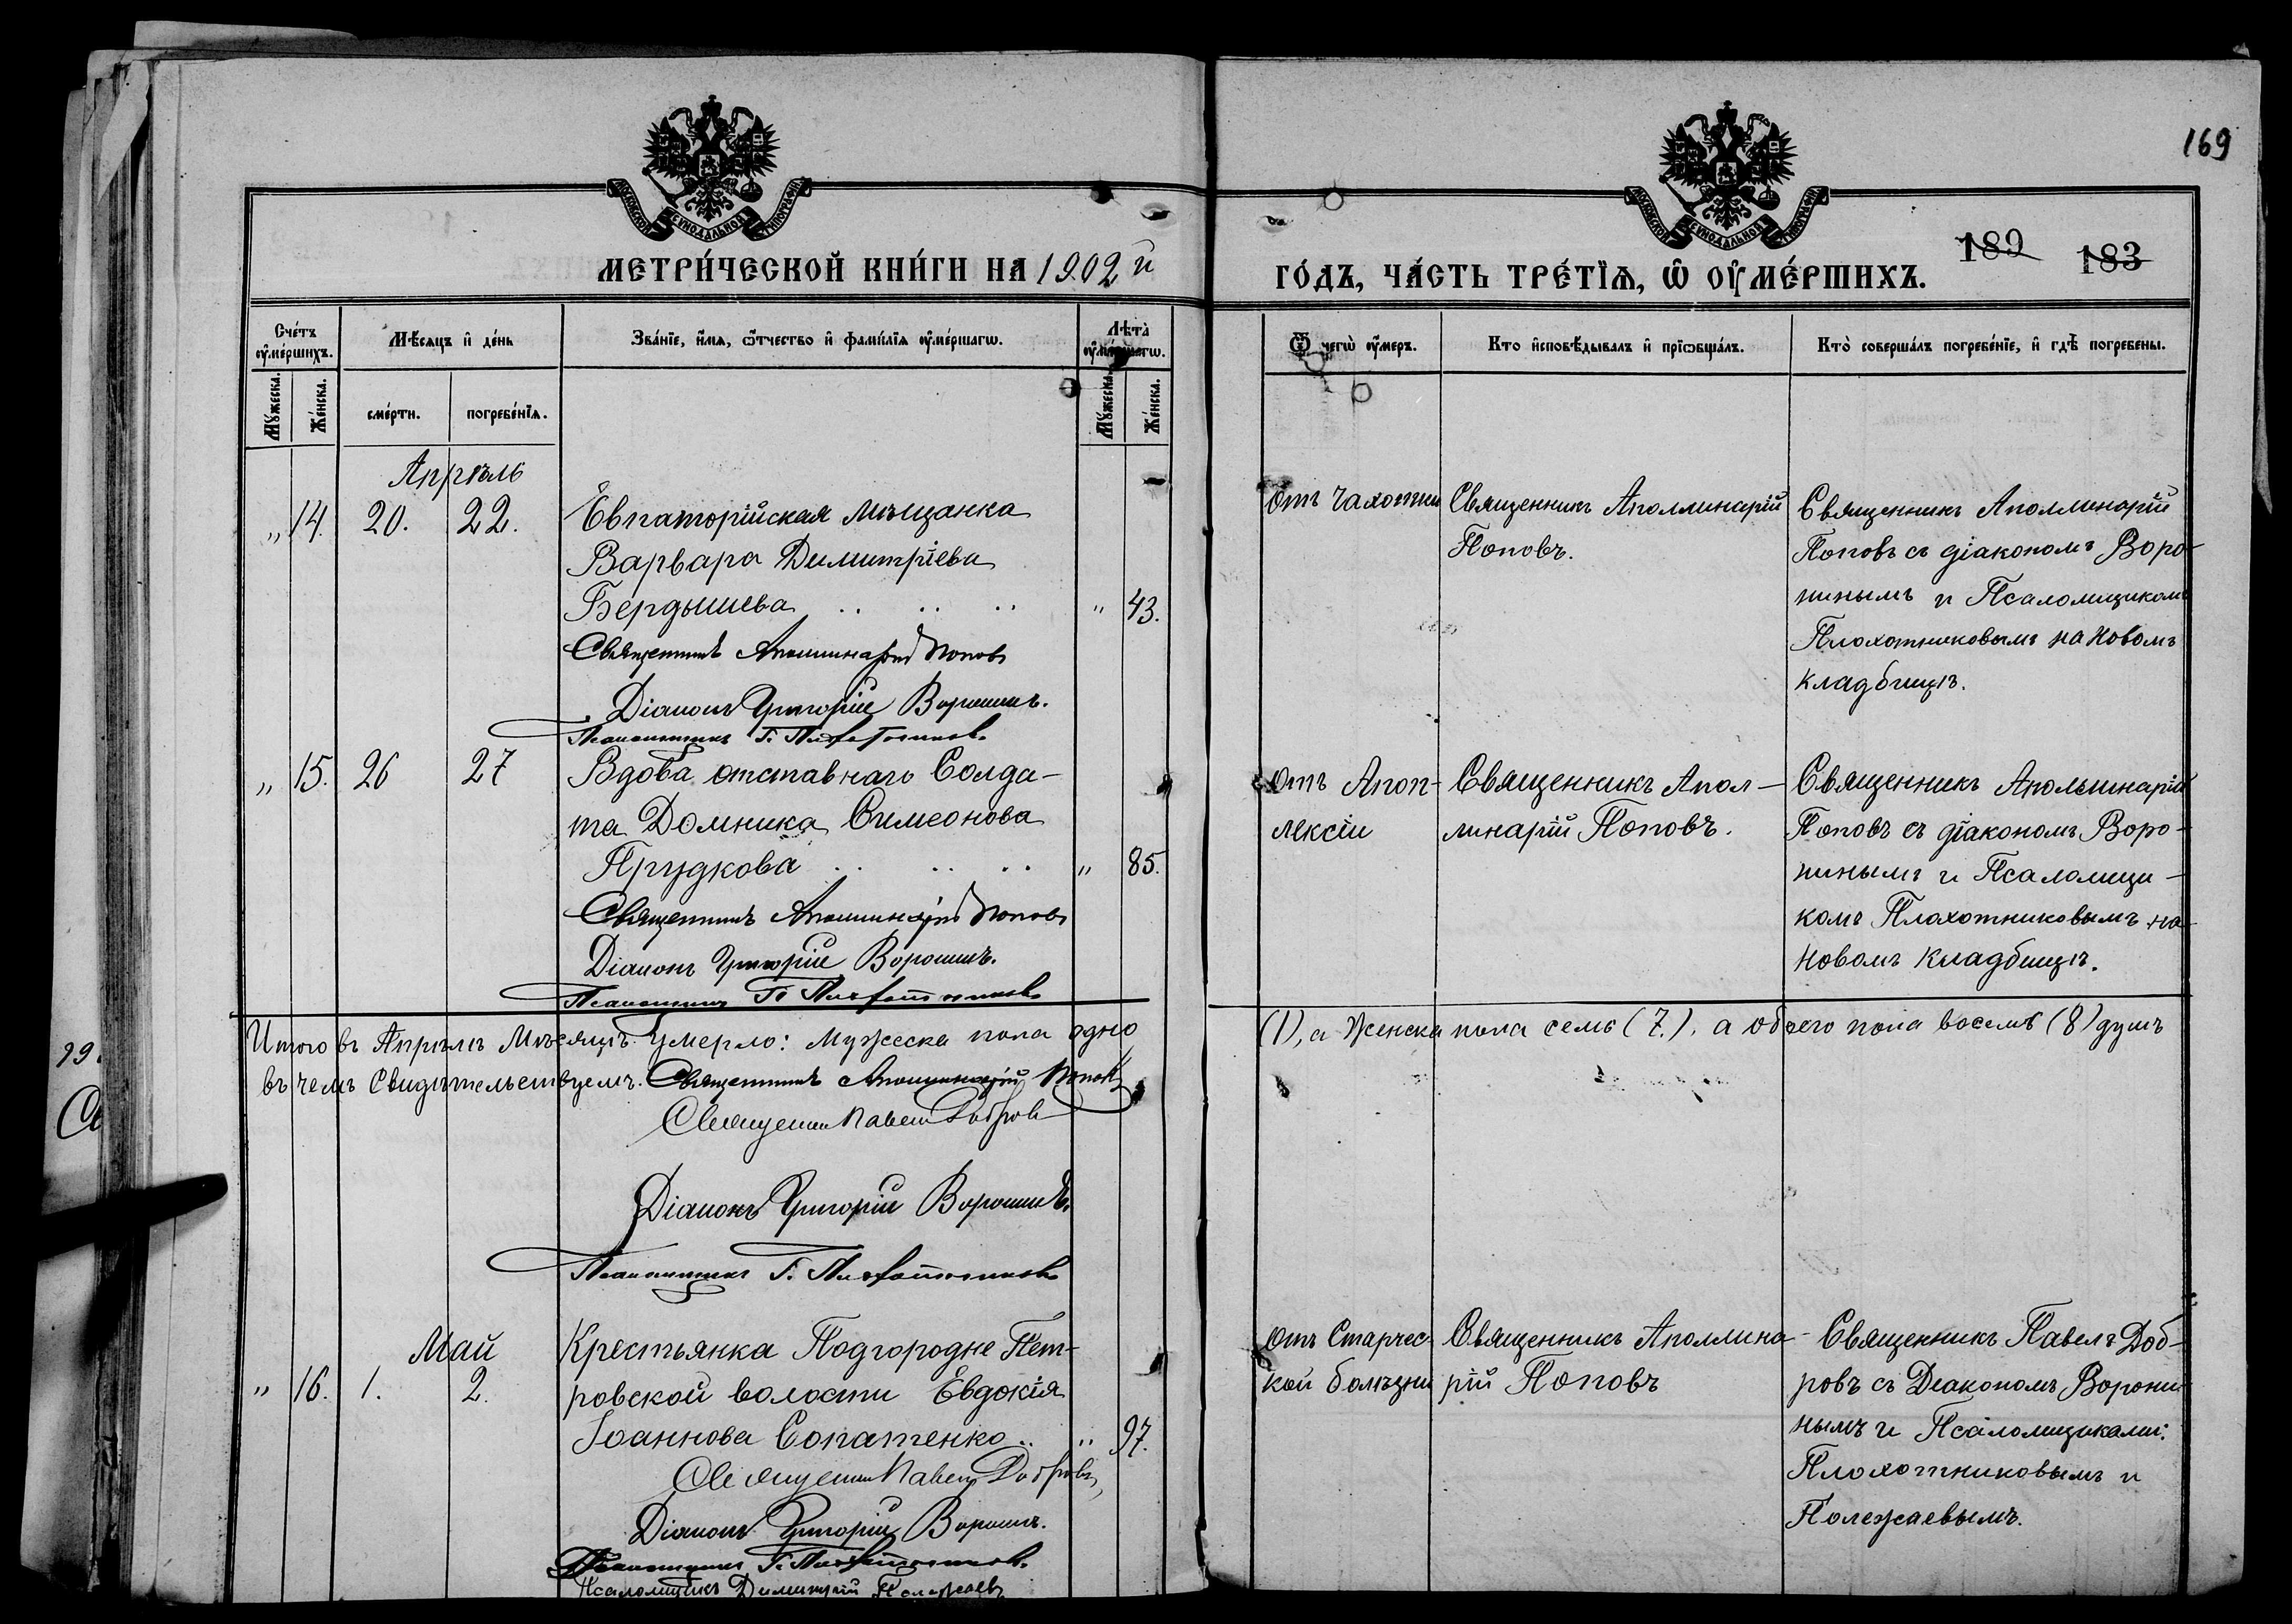 169
МЕТРИ́ЧЕСКОЙ КНИ́ГИ НА 1902й
ГО́ДЪ, ЧА́СТЬ ТРЕ́ТЇѦ, Ѽ ОУ҆МЕ́РШИХЪ.
189 183
Сче́тъ оу҆ме́ршихъ.
Мѣ́сѧцъ и҆ де́нь
Зва́нїе, и҆́мѧ, ѻ҆́тчество и҆ фамі́лїѧ оу҆ме́ршагѡ.
Лѣ́та оу҆ме́ршагѡ.
Ѿ чегѡ̀ оу҆́меръ.
Кто̀ и҆сповѣ́дывалъ и҆ прїѡбща́лъ.
Кто̀ соверша́лъ погребе́нїе, и҆ гдѣ̀ погребены̀.
Мꙋ́жеска.
Же́нска.
сме́рти.
погребе́нїѧ.
Мꙋ́жеска.
Же́нска.
Апрѣль
„ 14. 20. 22.
Евпаторійская мѣщанка
Варвара Димитріева
Бердышева . . . . . . „ 43.
Священникъ Аполлинарій Поповъ
Діаконъ Григорій Воронинъ.
Псаломщикъ Г. Плохотниковъ
отъ чахотки
Священникъ Аполлинарій
Поповъ.
Священникъ Аполлинарій
Поповъ съ діакономъ Воро-
нинымъ и Псаломщикомъ
Плохотниковымъ на новомъ
кладбищѣ.
„ 15. 26 27
Вдова отставнаго Солда-
та Домника Симеонова
Прудкова . . . . . . „ 85.
Священникъ Аполлинарій Поповъ
Діаконъ Григорій Воронинъ.
Псаломщикъ Г. Плохотниковъ
отъ Апоп-
лексіи
Священникъ Апол-
линарій Поповъ.
Священникъ Аполлинарій
Поповъ съ діакономъ Воро-
нинымъ и Псаломщи-
комъ Плохотниковымъ на
новомъ кладбищѣ.
Итого въ Апрѣлѣ Мѣсяцѣ умерло: Мужеска пола одно (1), а Женска пола семь (7.), а обоего пола восемь (8) душъ
въ чемъ Свидѣтельствуемъ. Священникъ Аполлинарій Поповъ
Священникъ Павелъ Добровъ
Діаконъ Григорій Воронинъ.
Псаломщикъ Г. Плохотниковъ
Май
„ 16. 1. 2.
Крестьянка Подгородне Пет-
ровской волости Евдокія
Іоаннова Сопатенко . . „ 97.
Священникъ Павелъ Добровъ
Діаконъ Григорій Воронинъ.
Псаломщикъ Г. Плохотниковъ.
Псаломщикъ Димитрій Полежаевъ
отъ Старчес-
кой болѣзни
Священникъ Аполлина-
рій Поповъ
Священникъ Павелъ Доб-
ровъ съ Діакономъ Ворони-
нымъ и Псаломщиками:
Плохотниковымъ и
Полежаевымъ.